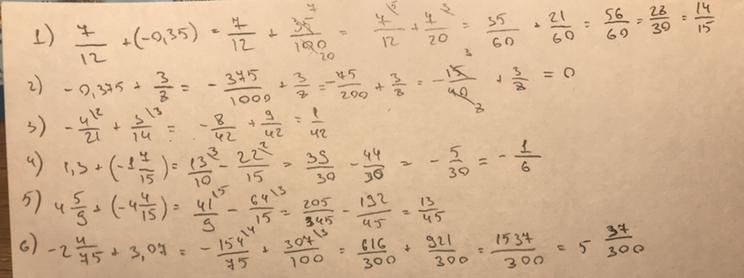 1) 7/12 + (-0,35) = 7/12 + 35/100 = 7/12 + 7/20 = 35/60 + 21/60 = 56/60 = 28/30 = 14/15
2) -0,375 + 3/8 = -375/1000 + 3/8 = -75/200 + 3/8 = -15/40 + 3/8 = 0
3) -4\2/21 + 3\3/14 = -8/42 + 9/42 = 1/42
4) 1,3 + (-1 7/15) = 13\3/10 - 22\2/15 = 39/30 - 44/30 = -5/30 = -1/6
5) 4 5/9 + (-4 4/15) = 41\5/9 - 64\3/15 = 205/345 - 192/45 = 13/45
6) -2 4/75 + 3,07 = -154\4/75 + 307\3/100 = 616/300 + 921/300 = 1537/300 = 5 37/300